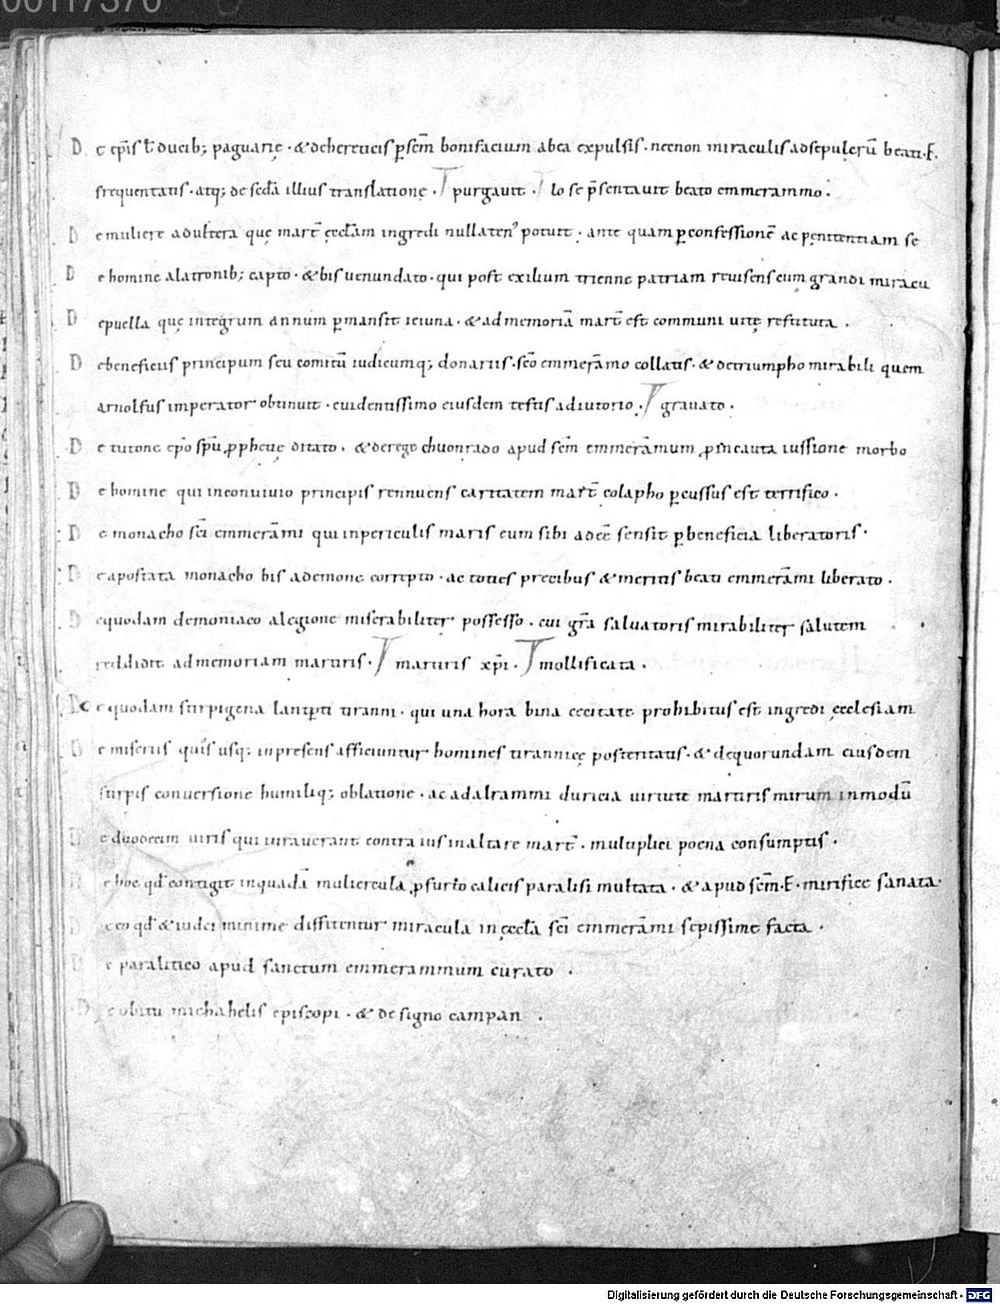 00117370
De ep̄is ł ducib; paguarię · & de hereticis p̱ sc̄m bonifacium ab ea expulsis · necnon miraculis ad sepulcrū beati · E ·
frequentatis · atq; de sc̄da illius translatione · purgauit · lo se p̄sentauit beato emmerammo ·
De muliere adultera quę mart̄ ęccl̄am ingredi nullaten᾽ potuit · ante quam p̱ confessionē ac pęnitentiam se
De homine a latronib; capto · & bis uenundato · qui post exilium trienne patriam reuisens cum grandi miracu
De puella quę integrum annum p̱mansit ieiuna · & ad memoriā mart̄ est communi uitę restituta ·
De beneficiis principum seu comitū iudicumq; donariis · sc̄o emmerāmo collatis · & de triumpho mirabili quem
arnolfus imperator obtinuit · euidentissimo eiusdem testis adiutorio · grauato ·
De tutone ep̄o sp̄u ꝓphetię ditato · & de rege chuonrado apud sc̄m emmerāmum ꝓ incauta iussione morbo
De homine qui in conuiuio principis rennuens caritatem mart̄ colapho p̱cussus est terrifico ·
De monacho sc̄i emmerāmi qui in periculis maris eum sibi adeē sensit p̱ beneficia liberatoris ·
De apostata monacho bis a demone correpto · ac toties precibus & meritis beati emmerāmi liberato ·
De quodam demoniaco a legione miserabiliter possesso · cui gr̄a saluatoris mirabiliter salutem
reddidit ad memoriam martiris · martiris xp̄i · mollificata ·
De quodam stirpigena lantp̱ti tiranni · qui una hora bina cecitate prohibitus est ingredi ęcclesiam
De miseriis quis usq; in presens afficiuntur homines tirannicę posteritatis · & de quorundam eiusdem
stirpis conuersione humiliq; oblatione · ac adalrammi duricia uirtute martiris mirum in modū
De duodecim uiris qui iurauerant contra ius in altare mart̄ · multiplici poena consumptis ·
De hoc qd̄ contigit in quadā muliercula ꝓ furto calicis paralisi multata · & apud sc̄m · E · mirifice sanata ·
De eo qd̄ & iudei minime diffitentur miracula in ęccl̄a sc̄i emmerāmi sepissime facta ·
De paralitico apud sanctum emmerammum curato ·
De obitu michahelis episcopi · & de signo campan ·
Digitalisierung gefördert durch die Deutsche Forschungsgemeinschaft · DFG